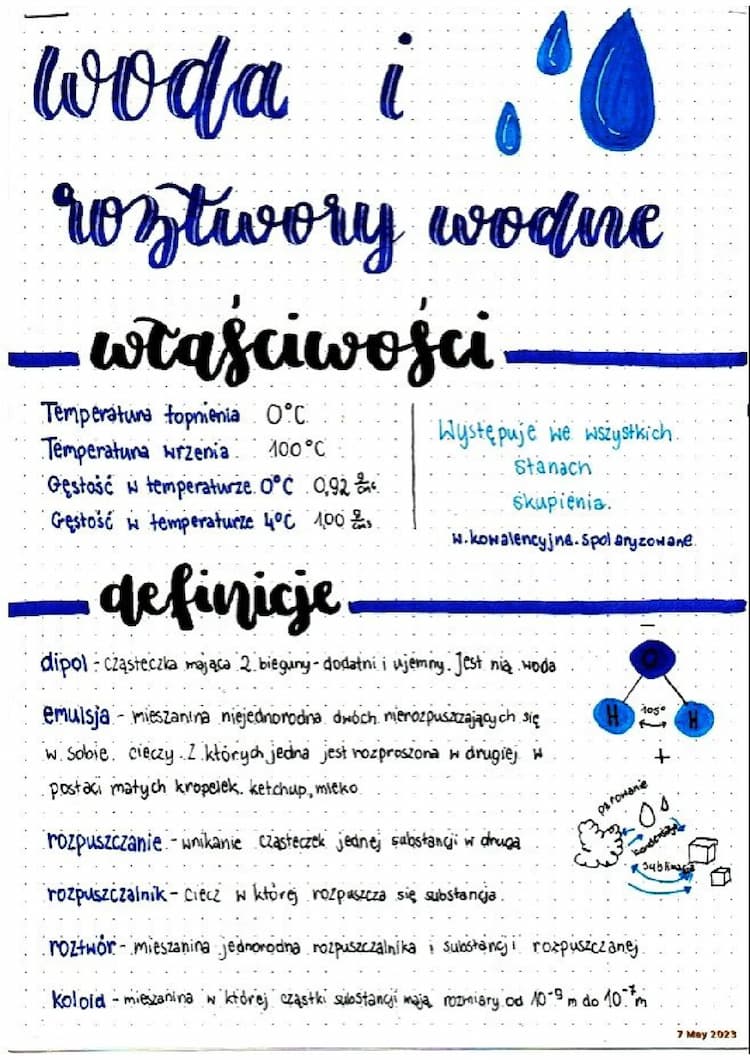 woda i
roztwory wodne
właściwości
Temperatura topnienia 0°C
Temperatura wrzenia 100°C
Gęstość w temperaturze 0°C 0,92 g/cm³
Gęstość w temperaturze 4°C 1,00 g/cm³
Występuje we wszystkich
stanach
skupienia.
w. kowalencyjne. spolaryzowane
definicje
dipol - cząsteczka mająca 2 bieguny - dodatni i ujemny. Jest nią woda
emulsja - mieszanina niejednorodna dwóch nierozpuszczających się
w sobie cieczy. Z których jedna jest rozproszona w drugiej w
postaci małych kropelek. ketchup, mleko
rozpuszczanie - wnikanie cząsteczek jednej substancji w drugą
rozpuszczalnik - ciecz w której rozpuszcza się substancja.
roztwór - mieszanina jednorodna rozpuszczalnika i substancji rozpuszczanej
koloid - mieszanina w której cząstki substancji mają rozmiary od 10⁻⁹ m do 10⁻⁷ m
−
O
H 105° H
+
parowanie
kondensacja
sublimacja
7 May 2023